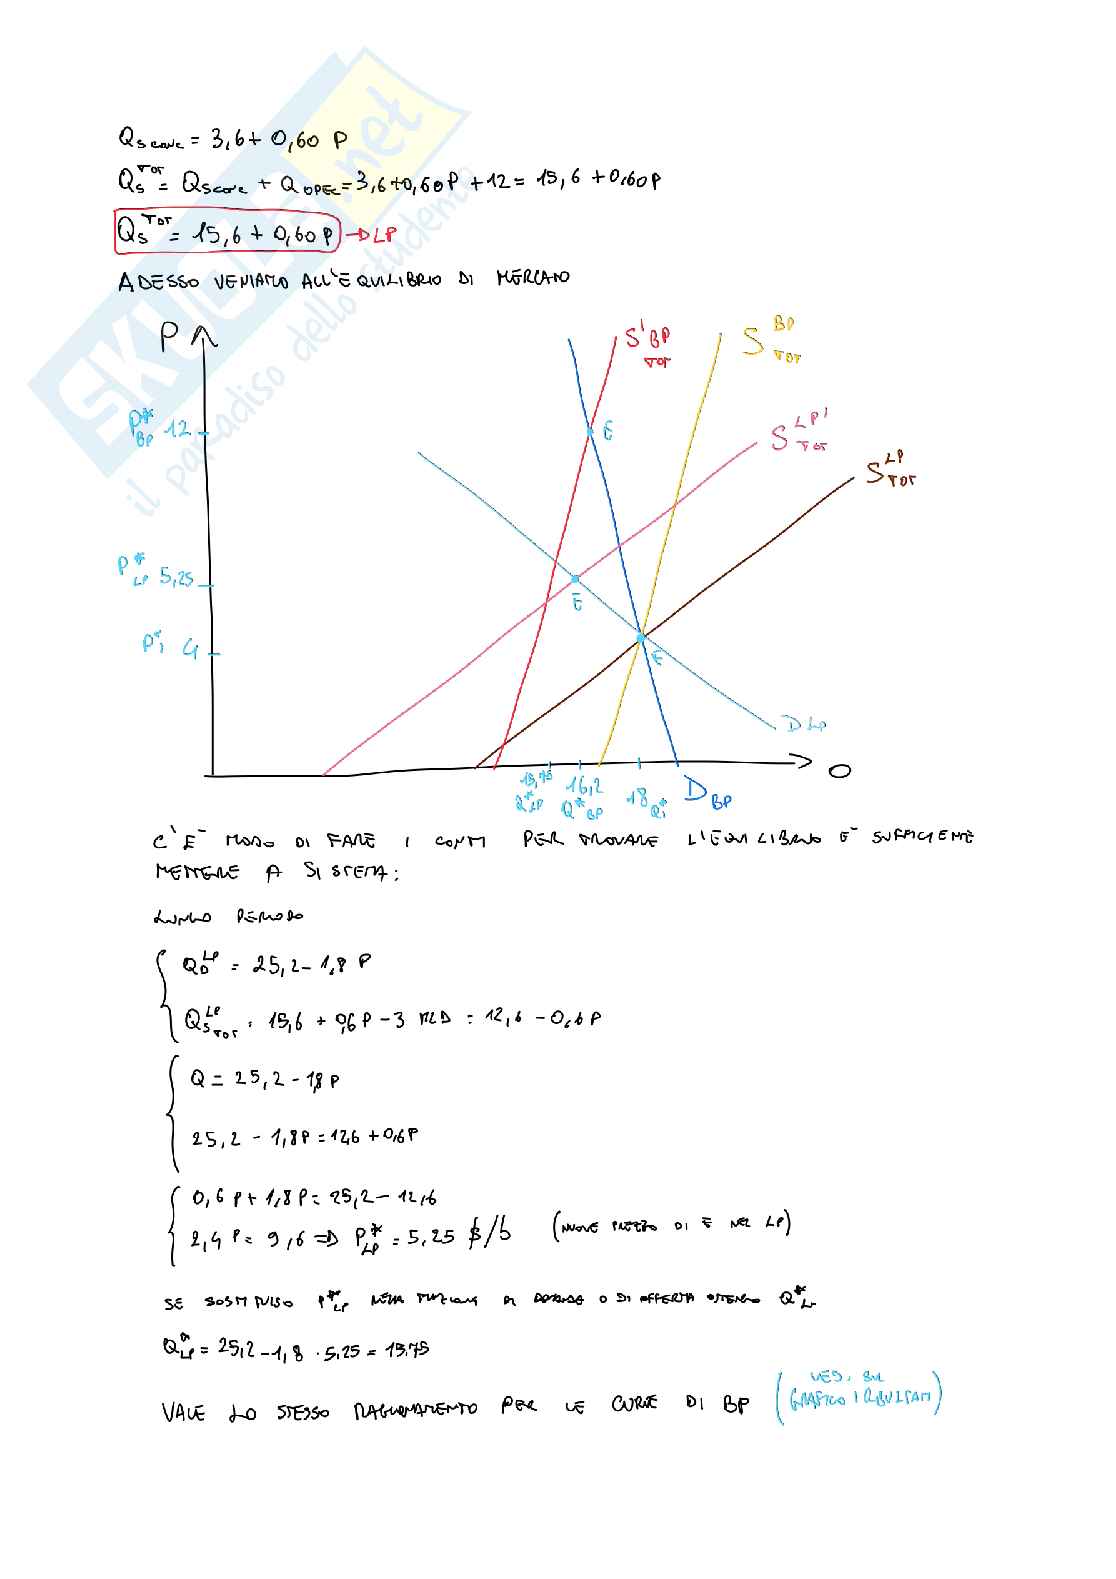 SKUOLA.net
il paradiso dello studente
Q_S CONC = 3,6 + 0,60 P
Q_S^TOT = Q_S CONC + Q_OPEC = 3,6 + 0,60 P + 12 = 15,6 + 0,60 P
Q_S^TOT = 15,6 + 0,60 P → LP
ADESSO VENIAMO ALL'EQUILIBRIO DI MERCATO
P
S'_TOT^BP
S_TOT^BP
P*_BP 12
E
S_TOT^LP'
S_TOT^LP
P*_LP 5,25
E
P*_i 4
E
D LP
Q
15,75 16,2 18
Q*_LP Q*_BP Q_i*
D_BP
C'È MODO DI FARE I CONTI PER TROVARE L'EQUILIBRIO E' SUFFICIENTE
METTERE A SISTEMA:
LUNGO PERIODO
Q_D^LP = 25,2 - 1,8 P
Q_S TOT^LP = 15,6 + 0,6 P - 3 MLD = 12,6 - 0,6 P
Q = 25,2 - 1,8 P
25,2 - 1,8 P = 12,6 + 0,6 P
0,6 P + 1,8 P = 25,2 - 12,6
2,4 P = 9,6 ⇒ P*_LP = 5,25 $/b (NUOVO PREZZO DI E NEL LP)
SE SOSTITUISCO P*_LP NELLA FUNZIONE DI DOMANDA O DI OFFERTA OTTENGO Q*_LP
Q*_LP = 25,2 - 1,8 · 5,25 = 15,75
VALE LO STESSO RAGIONAMENTO PER LE CURVE DI BP (VEDI SUL
GRAFICO I RISULTATI)